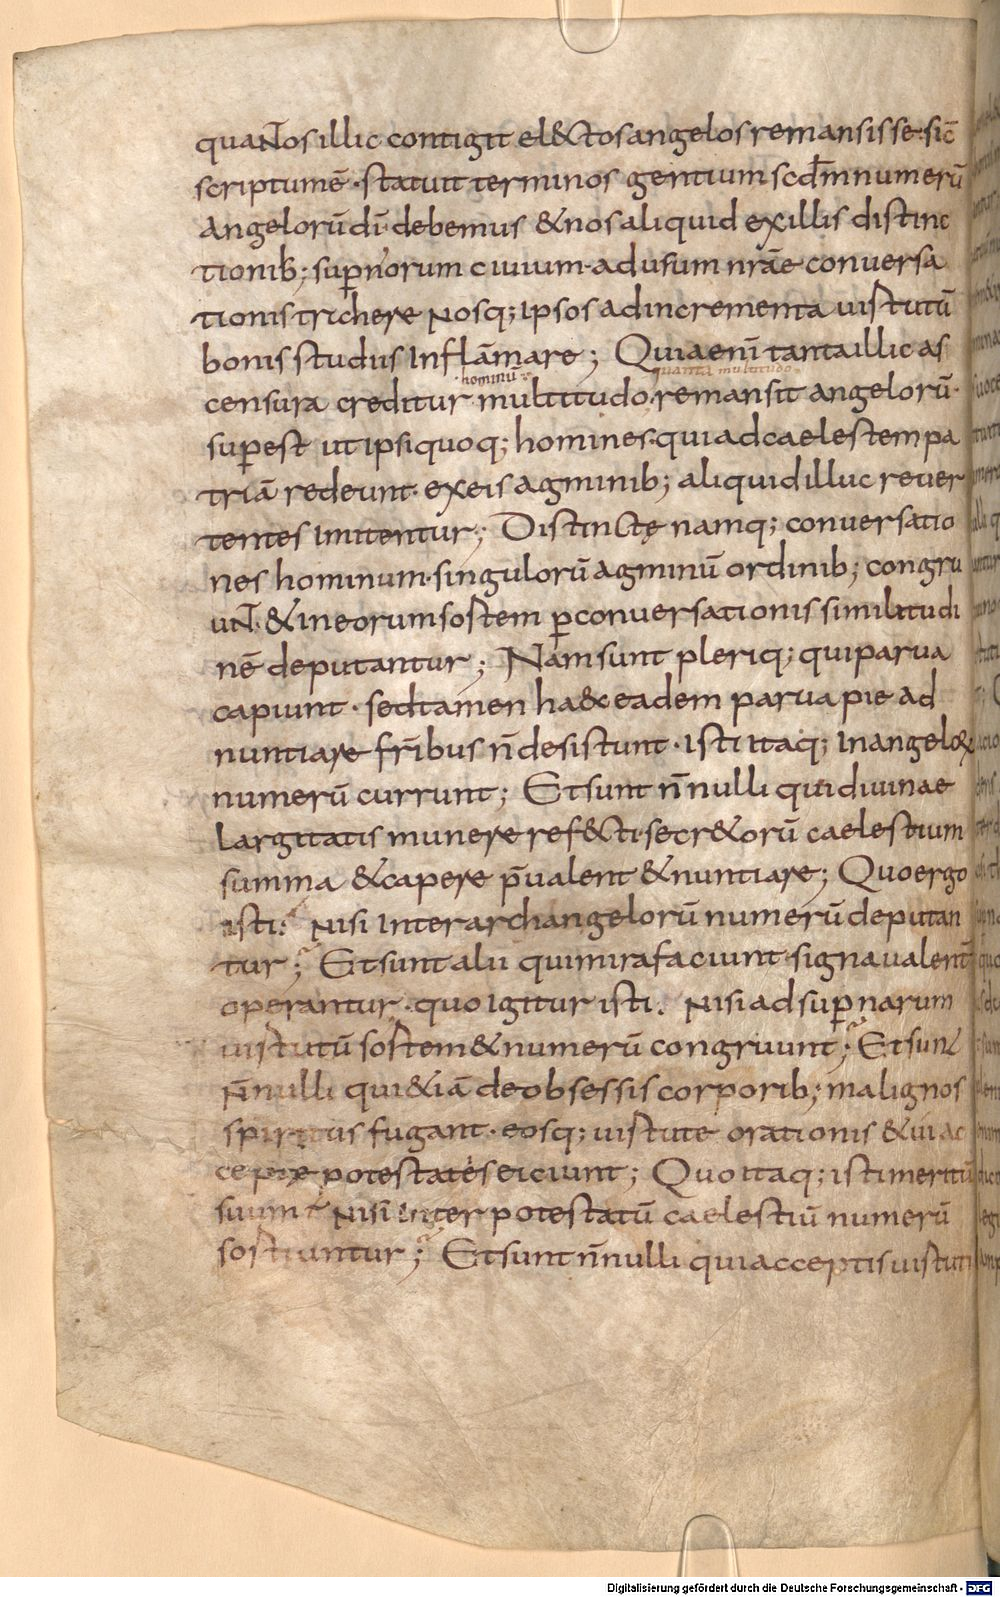 quantos illic contigit el&ctos angelos remansisse · sic̄
scriptumē · statuit terminos gentium scdm̄ numerū
angelorū dī · debemus & nos aliquid ex illis distinc
tionib; sup̄norum ciuium · ad usum nr̄ae conuersa
tionis trahere nosq; ipsos ad incrementa uirtutū
bonis studiis inflāmare ; Quia enī tanta illic as
· hominū · quanta multitudo
censura creditur multitudo remansit angelorū ·
sup̄est ut ipsi quoq; homines qui ad caelestem pa
triā redeunt · ex eis agminib; aliquid illuc reuer
tentes imitentur ; Distinctę namq; conuersatio
nes hominum · singulorū agminū ordinib; congru
unt · & in eorum sortem p̄ conuersationis similitudi
nē deputantur ; Nam sunt pleriq; qui parua
capiunt · sed tamen ha&c eadem parua pie ad
nuntiare fr̄ibus n̄ desistunt · isti itaq; in angelo&
numerū currunt ; Et sunt n̄nulli qui diuinae
largitatis munere ref&cti · secr&orū caelestium
summa & capere p̄ualent & nuntiare ; Quo ergo
isti · Nisi inter archangelorū numerū deputan
tur ; Et sunt alii qui mira faciunt · signa ualent̄
operantur · quo igitur isti · Nisi ad sup̄narum
uirtutū sortem & numerū congruunt ; Et sunt
n̄nulli qui &iā de obsessis corporib; malignos
spiritus fugant · eosq; uirtute orationis & ui ac
cepte potestatis eiciunt ; Quo itaq; isti meritū
suum · Nisi inter potestatū caelestiū numerū
sortiuntur ; Et sunt n̄nulli qui acceptis uirtuti
Digitalisierung gefördert durch die Deutsche Forschungsgemeinschaft - DFG